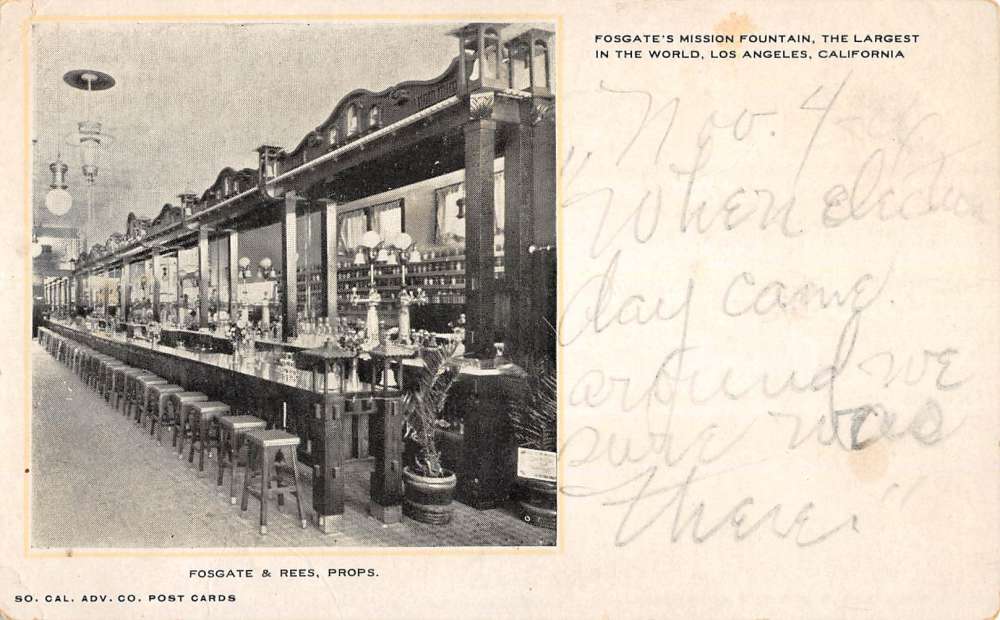 FOSGATE'S MISSION FOUNTAIN, THE LARGEST
IN THE WORLD, LOS ANGELES, CALIFORNIA
Nov. 4-
"When election
day came
around we
sure was
there"
FOSGATE & REES, PROPS.
SO. CAL. ADV. CO. POST CARDS